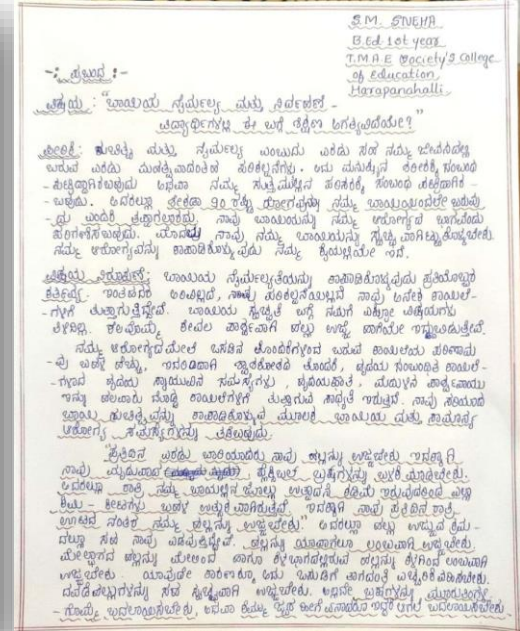 S.M. SNEHA
B.Ed 1st year
T.M.A.E Society's College
of Education
Harapanahalli.
-: ಪ್ರಬಂಧ :-
ವಿಷಯ : "ಬಾಯಿಯ ನೈರ್ಮಲ್ಯ ಮತ್ತು ನಿರ್ವಹಣೆ -
ವಿದ್ಯಾರ್ಥಿಗಳಲ್ಲಿ ಈ ಬಗ್ಗೆ ಶಿಕ್ಷಣ ಅಗತ್ಯವಿದೆಯೇ?"
ಪೀಠಿಕೆ : ಶುಚಿತ್ವ ಮತ್ತು ನೈರ್ಮಲ್ಯ ಎಂಬುದು ಎರಡು ಸಹ ನಮ್ಮ ಜೀವನದಲ್ಲಿ
ಬರುವ ಎರಡು ಮಹತ್ವವಾದಂತಹ ಪರಿಕಲ್ಪನೆಗಳು. ಅದು ಮನುಷ್ಯನ ಶರೀರಕ್ಕೆ ಸಂಬಂಧ
- ಪಟ್ಟಿದ್ದಾಗಿರಬಹುದು ಅಥವಾ ನಮ್ಮ ಸುತ್ತಮುತ್ತಲಿನ ಪರಿಸರಕ್ಕೆ ಸಂಬಂಧ ಪಟ್ಟಿದ್ದಾಗಿರ
- ಬಹುದು. ಅದರಲ್ಲೂ ಶೇಕಡಾ 90 ರಷ್ಟು ರೋಗವನ್ನು ನಮ್ಮ ಬಾಯಿಯಿಂದಲೇ ಬರುವು
- ದು ಎಂದರೆ ತಪ್ಪಾಗಲಾರದು. ನಾವು ಬಾಯಿಯನ್ನು ನಮ್ಮ ಆರೋಗ್ಯದ ಭಾಗವೆಂದು
ಪರಿಗಣಿಸಬಹುದು. ಮೊದಲು ನಾವು ನಮ್ಮ ಬಾಯಿಯನ್ನು ಸ್ವಚ್ಛವಾಗಿಟ್ಟುಕೊಳ್ಳಬೇಕು
ನಮ್ಮ ಆರೋಗ್ಯವನ್ನು ಕಾಪಾಡಿಕೊಳ್ಳುವುದು ನಮ್ಮ ಕೈಯಲ್ಲಿಯೇ ಇದೆ.
ವಿಷಯ ನಿರೂಪಣೆ : ಬಾಯಿಯ ನೈರ್ಮಲ್ಯತೆಯನ್ನು ಕಾಪಾಡಿಕೊಳ್ಳುವುದು ಪ್ರತಿಯೊಬ್ಬರ
ಕರ್ತವ್ಯ. ಇಂತಹದರ ಅರಿವಿಲ್ಲದೆ, ನಾವು ಪರಿಕಲ್ಪನೆಯಿಲ್ಲದೆ ನಾವು ಅನೇಕ ಕಾಯಿಲೆ-
- ಗಳಿಗೆ ತುತ್ತಾಗುತ್ತಿದ್ದೇವೆ. ಬಾಯಿಯ ಸ್ವಚ್ಛತೆ ಬಗ್ಗೆ ನಮಗೆ ಎಷ್ಟೋ ವಿಷಯಗಳು
ತಿಳಿದಿಲ್ಲ. ಕೆಲವೊಮ್ಮೆ ಕೇವಲ ಹಲ್ಲು ಉಜ್ಜಿ ಹಾಗೆಯೇ ಇದ್ದುಬಿಡುತ್ತೇವೆ.
ನಮ್ಮ ಆರೋಗ್ಯದ ಮೇಲೆ ಒಸಡಿನ ತೊಂದರೆಗಳಿಂದ ಬರುವ ಕಾಯಿಲೆಯ ಪರಿಣಾಮ
- ವು ಬಹಳ ಹೆಚ್ಚು, ಇದರಿಂದಾಗಿ ಶ್ವಾಸಕೋಶದ ತೊಂದರೆ, ಹೃದಯ ಸಂಬಂಧಿತ ಕಾಯಿಲೆ-
- ಗಳಾದ ಹೃದಯ ಸ್ನಾಯುವಿನ ಸಮಸ್ಯೆಗಳು, ಹೃದಯಾಘಾತ, ಮೆದುಳಿನ ಪಾರ್ಶ್ವವಾಯು
ಇನ್ನು ಹಲವಾರು ದೊಡ್ಡ ಕಾಯಿಲೆಗಳಿಗೆ ತುತ್ತಾಗುವ ಸಾಧ್ಯತೆ ಇರುತ್ತದೆ. ನಾವು ಸರಿಯಾದ
ಬಾಯಿ ಶುಚಿತ್ವವನ್ನು ಕಾಪಾಡಿಕೊಳ್ಳುವ ಮೂಲಕ ಬಾಯಿಯ ಮತ್ತು ಸಾಮಾನ್ಯ
ಆರೋಗ್ಯ ಸಮಸ್ಯೆಗಳನ್ನು ತಡೆಯಬಹುದು.
"ಪ್ರತಿದಿನ ಎರಡು ಬಾರಿಯಾದರು ನಾವು ಹಲ್ಲನ್ನು ಉಜ್ಜಬೇಕು ಇದಕ್ಕಾಗಿ
ನಾವು ಮೃದುವಾದ ಫ್ಲೆಕ್ಸಿಬಲ್ ಬ್ರಷ್‌ಗಳನ್ನು ಬಳಕೆ ಮಾಡಬೇಕು.
ಅದರಲ್ಲೂ ರಾತ್ರಿ ನಮ್ಮ ಬಾಯಲ್ಲಿನ ಜೊಲ್ಲು ಉತ್ಪಾದನೆ ಕಡಿಮೆ ಇರುವುದರಿಂದ ಎಲ್ಲಾ
ಕ್ರಿಮಿ - ಕೀಟಗಳು ಬಹಳ ಉತ್ಸುಕವಾಗಿರುತ್ತವೆ. ಇದಕ್ಕಾಗಿ ನಾವು ಪ್ರತಿದಿನ ರಾತ್ರಿ
ಊಟದ ನಂತರ ನಮ್ಮ ಹಲ್ಲನ್ನು ಉಜ್ಜಬೇಕು." ಅದರಲ್ಲೂ ಹಲ್ಲು ಉಜ್ಜುವ ಕ್ರಮ -
ದಲ್ಲೂ ಸಹ ನಾವು ಎಡವುತ್ತಿದ್ದೇವೆ. ಹಲ್ಲನ್ನು ಯಾವಾಗಲೂ ಲಂಬವಾಗಿ ಉಜ್ಜಬೇಕು.
ಮೇಲ್ಭಾಗದ ಹಲ್ಲನ್ನು ಮೇಲಿಂದ ಹಾಗೂ ಕೆಳಭಾಗದಲ್ಲಿರುವ ಹಲ್ಲನ್ನು ಕೆಳಗಿಂದ ಲಂಬವಾಗಿ
ಉಜ್ಜಬೇಕು. ಯಾವುದೇ ಕಾರಣಕ್ಕೂ ಅದು ಒಸಡಿಗೆ ತಾಗದಂತೆ ಎಚ್ಚರಿಕೆ ವಹಿಸಬೇಕು.
ದವಡೆ ಹಲ್ಲುಗಳನ್ನು ಸಹ ಸ್ವಚ್ಛವಾಗಿ ಉಜ್ಜಬೇಕು. ಅಲ್ಲದೇ ಬ್ರಷ್‌ಗಳನ್ನು ಮೂರುತಿಂಗಳಿ
- ಗೊಮ್ಮೆ ಬದಲಾಯಿಸಬೇಕು, ಅಥವಾ ಕೆಮ್ಮು ಜ್ವರ ಹೀಗೆ ಏನಾದರೂ ಇದ್ದರೆ ಆಗಲೆ ಬದಲಾಯಿಸಬೇಕು.